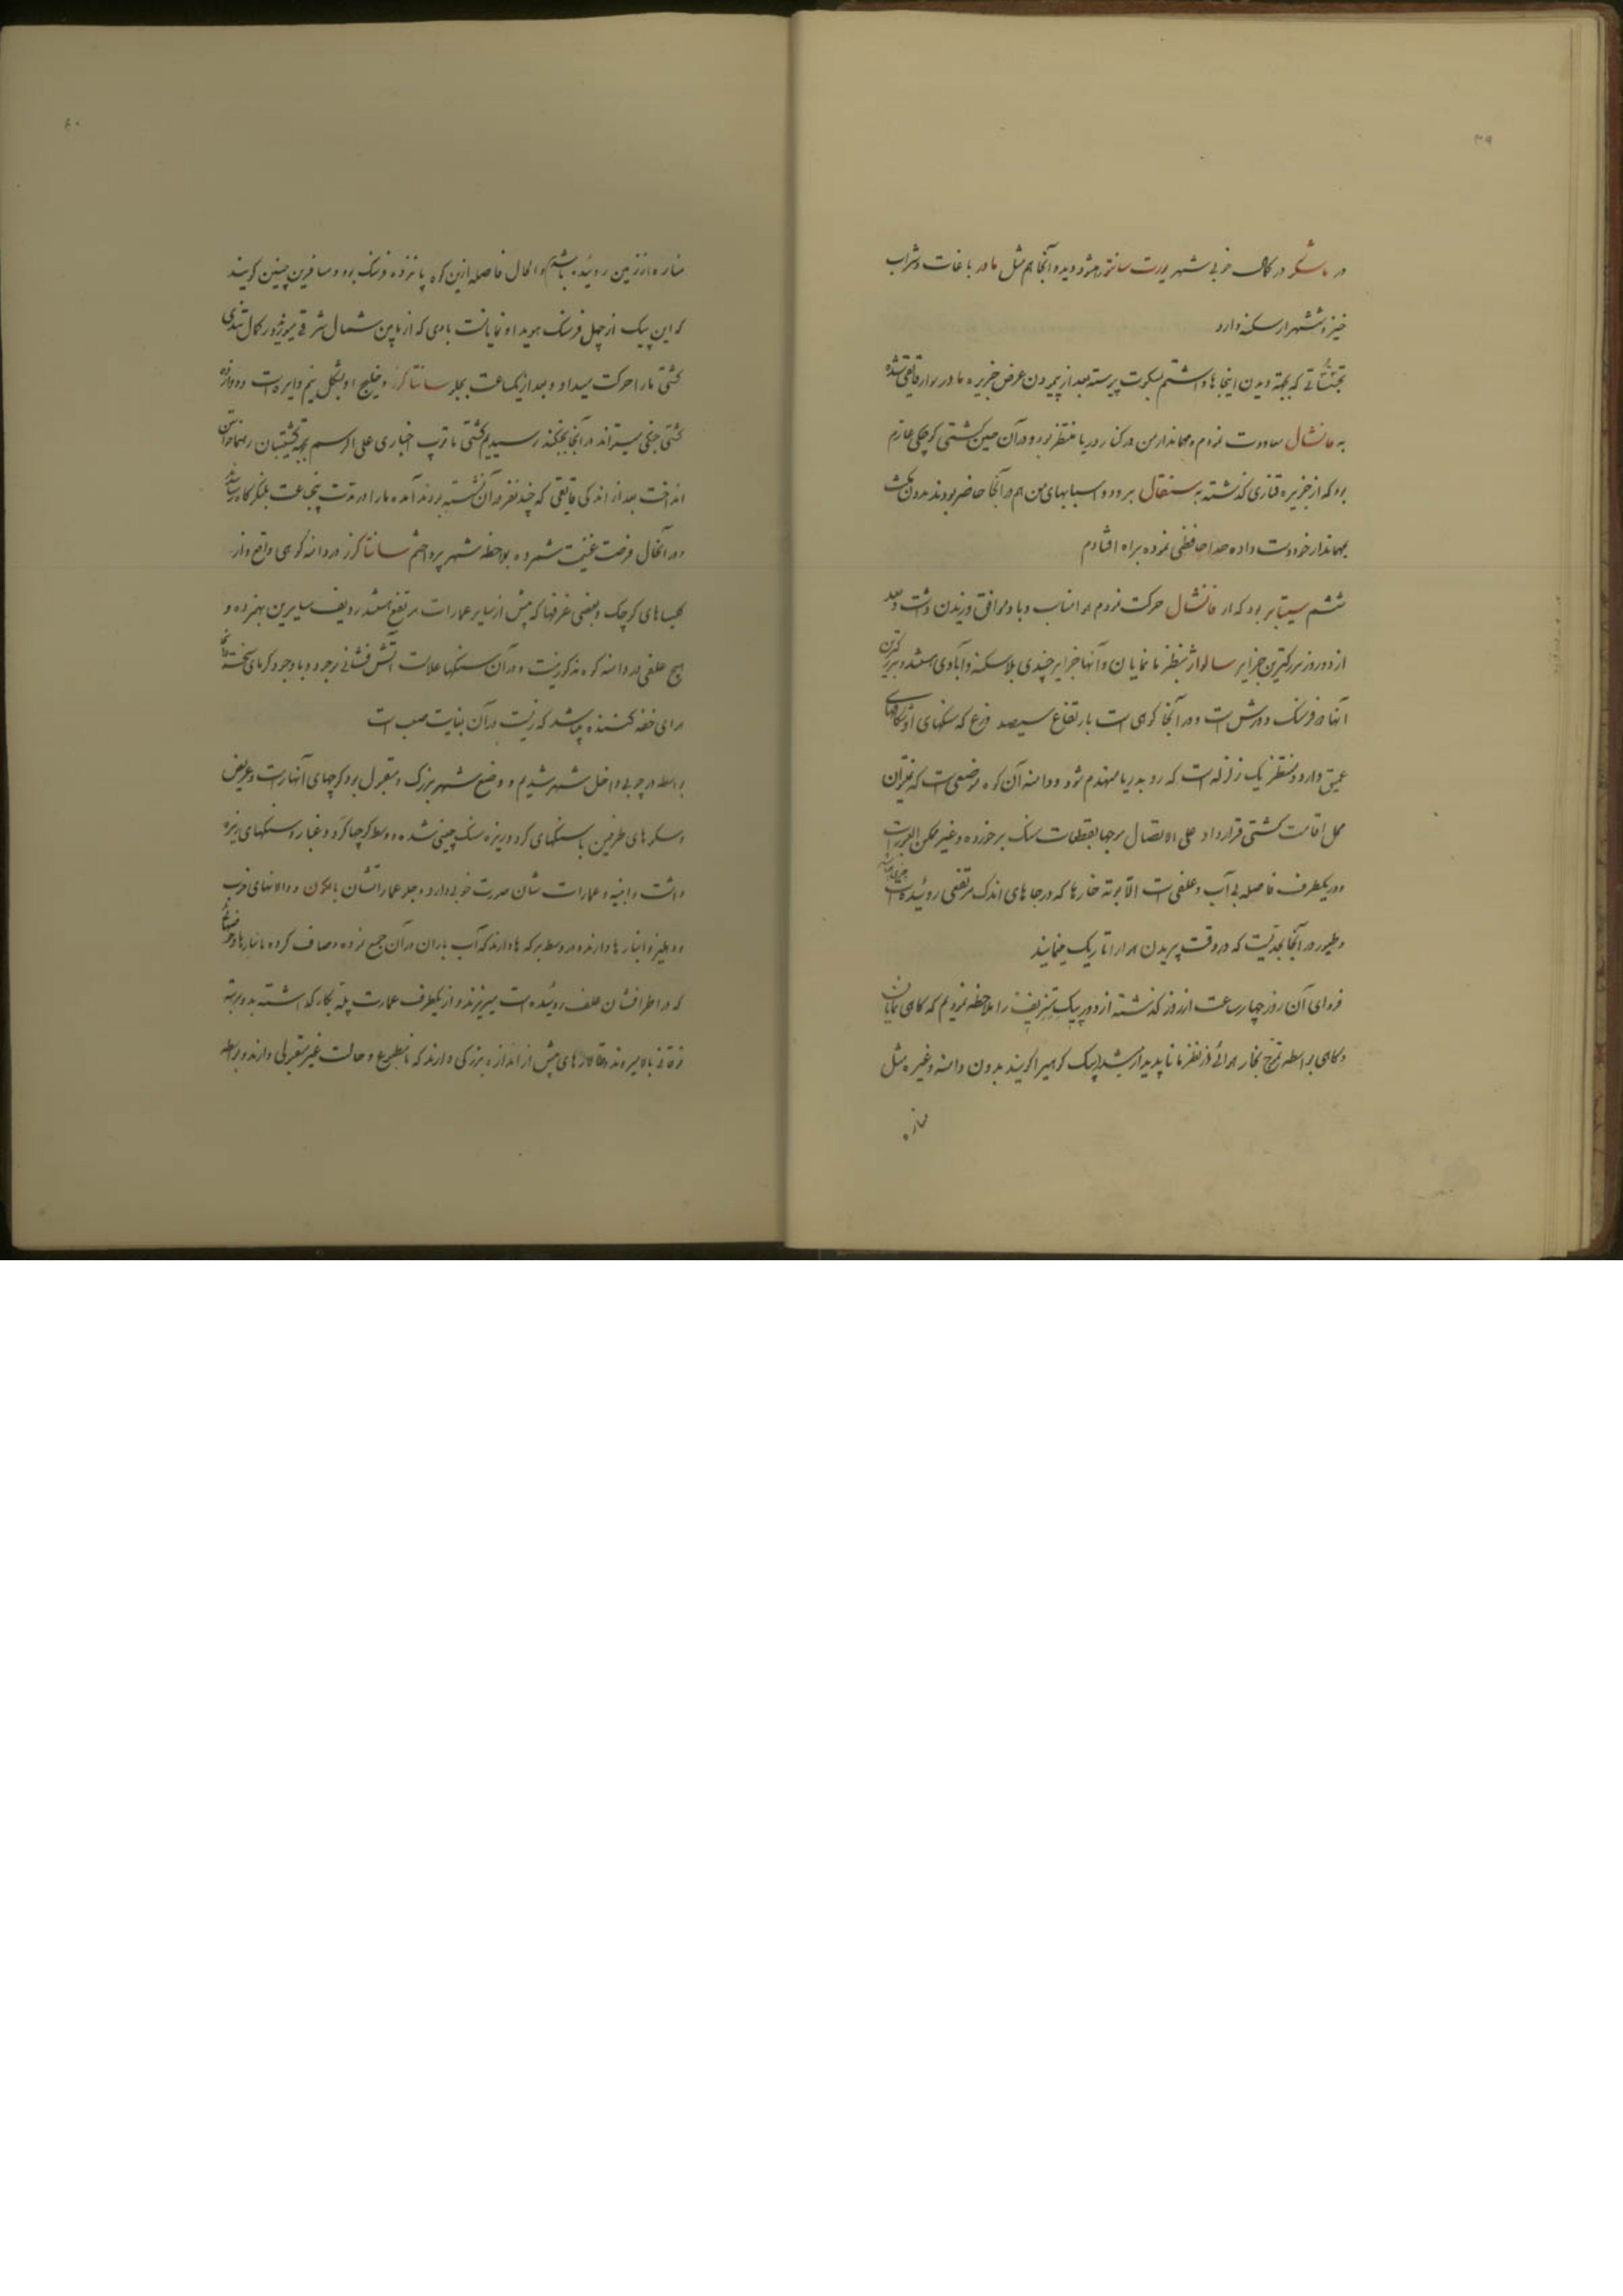 ۳۹
در ماشکر در کمال خوبی شهر پورت سانتو میشود دید و آنجا هم مثل مادر باغات و شراب
خیز و شش هزار سکنه دارد
که بجهة دیدن اینجاها داشتم بسکوت پرسته بعد از پیمودن عرض جزیره مادر سوار قایقی شده
به فانشال معاودت نمودم و مهماندار من در کنار دریا منتظر بود و در آن حین کشتی کوچکی عازم
بود که از جزیره قناری گذشته به سنقال برود و اسبابهای من هم در آنجا حاضر بودند بدون مکث
بمهماندار خود دست داده خداحافظی نموده براه افتادم
ششم سپتامبر بود که از فانشال حرکت نمودم هوا مناسب و باد موافق وزیدن داشت و بعد
از دو روز بزرگترین جزایر سالواژ بنظر ما نمایان و آنها جزایر چندی بلا سکنه و آبادی هستند و بزرگترین
آنها ده فرسنگ دورش است و در آنجا کوهی است بارتفاع سیصد ذرع که سنگهای او شکافهای
عمیق دارد و منتظر یک زلزله است که رو بدریا منهدم شود و دامنه آن کوه موضعی است که نمیتوان
محل اقامت کشتی قرار داد علی الاتصال موجها بقطعات سنگ برخورده و غیر ممکن العبور است
و در یکطرف فاصله بی آب و علفی است الا بوته خارها که در جاهای اندک مرتفعی روئیده است
و طیور در آنجا بحدیست که در وقت پریدن هوا را تاریک مینمایند
فردای آن روز چهار ساعت از روز گذشته از دور پیک تنریف را ملاحظه نمودیم که گاهی نمایان
و گاهی بواسطه تموج بخار هوائی از نظر ما ناپدیدار میشد پیک کوهیرا گویند بدون دامنه و غیره مثل
مناره
۴۰
مناره از زمین روئیده باشد و الحال فاصله ازین کوه پانزده فرسنگ بود و مسافرین چنین گویند
که این پیک از چهل فرسنگ هویدا و نمایانست بادی که از مابین شمال شرقی میوزید در کمال تندی
کشتی ما را حرکت میداد و بعد از یکساعت بجلو سانتا کرز و خلیج او بشکل نیم دایره است و دوازده
کشتی جنگی میتواند در آنجا لنگر رسیدیم کشتی ما توپ اخباری علی الرسم بجهة کشتیبان رهنما خواستن
انداخت بعد از اندکی قایقی که چند نفر در آن نشسته بودند آمده ما را در مدت پنجساعت بلنگرگاه رسانیدند
در آنحال فرصت غنیمت شمرده بملاحظه شهر پرداختم سانتا کرز در دامنه کوهی واقع و از
کلیساهای کوچک و بعضی غرفها که بیش از سایر عمارات مرتفع هستند ردیف سایرین بهم زده و
هیچ علفی در دامنه کوه مذکور نیست و در آن سنگها علامت آتش فشانی موجود و با وجود گرمای سخت آنجا
هوای خفه کننده میباشد که زیست در آن بغایت صعب است
بواسطه در چوبی داخل شهر شدیم و وضع شهر بزرگ و مقبول بود کوچهای آنها راست و عریض
و سکوهای طرفین با سنگهای گرد و ریزه سنگ چینی شده و وسط کوچها گرد و غبار و سنگهای ریزه
داشت و ابنیه و عمارات شان صورت خوبی دارد و جلو عماراتشان بالکون و دالانهای خوب
و دهلیز و انبارها دارند و در وسط برکه ها دارند که آب باران در آن جمع نموده و صاف کرده بانبارها و حوضهائی
که در اطرافشان علف روئیده است میریزند و از یکطرف عمارت پله بکار گذاشته بدو مرتبه
فوقانی بالا میروند و تالارهای بیش از اندازه بزرگی دارند که نامطبوع و حالت غیر مقبولی دارند و بواسطه